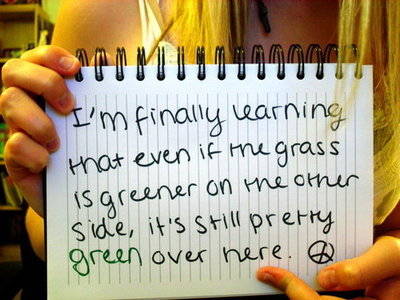 I'm finally learning
that even if the grass
is greener on the other
side, it's still pretty
green over here.